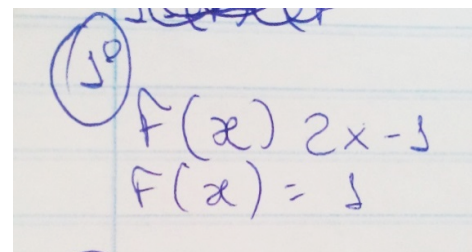 1º
F(x) 2x-1
F(x) = 1